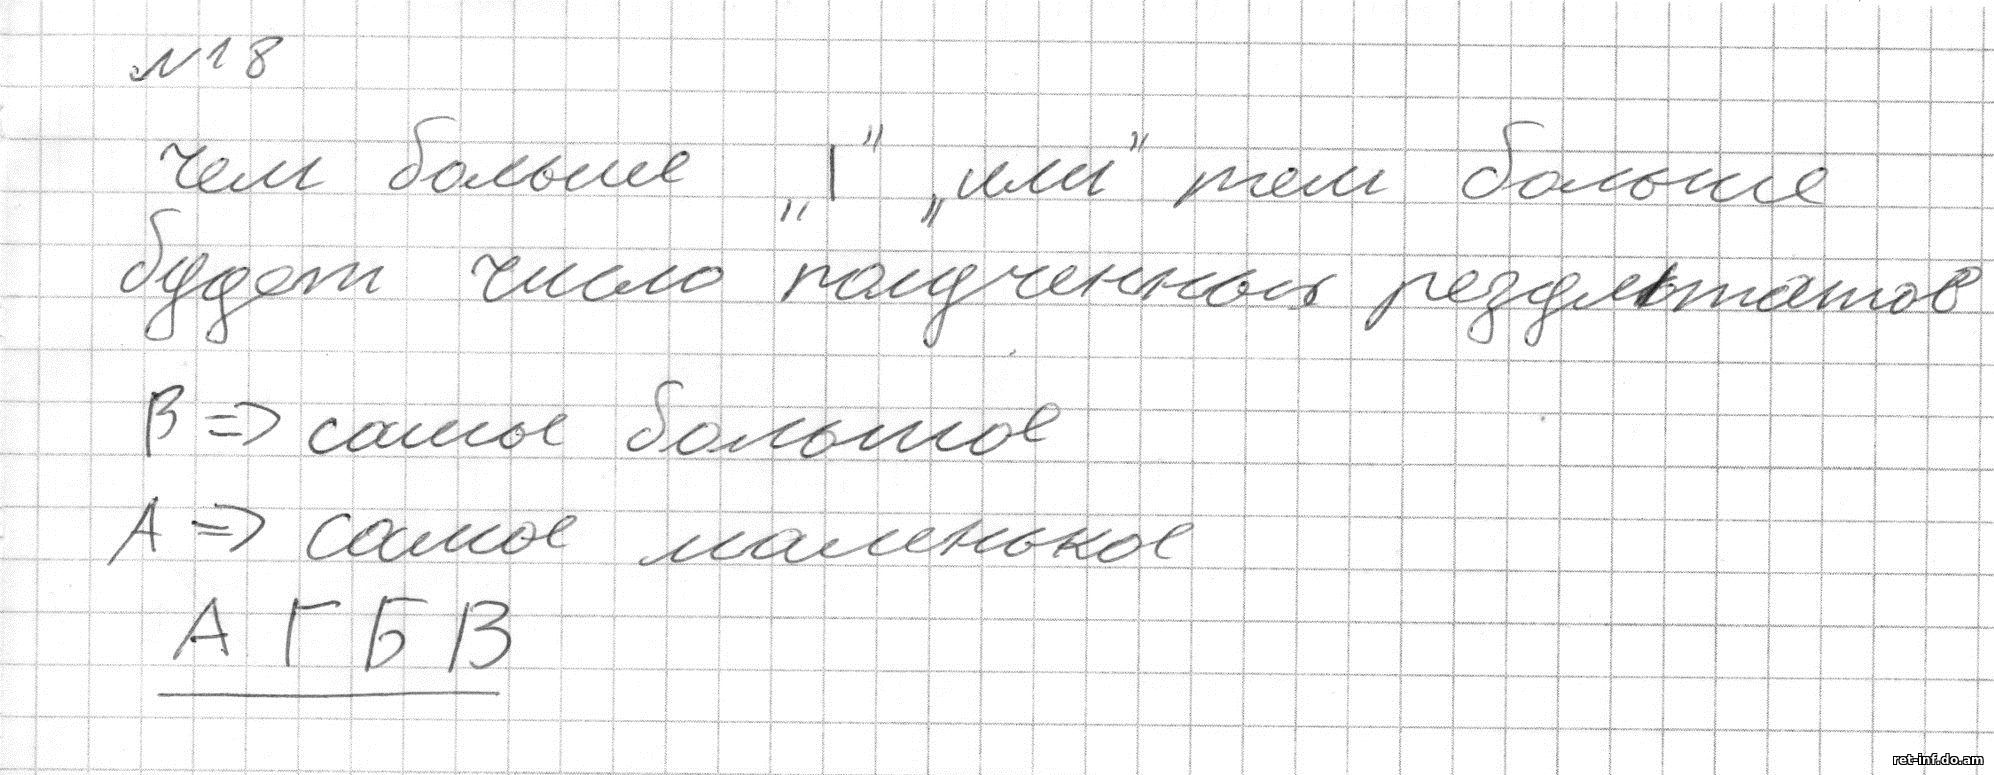 №18
чем больше „|” „или” тем больше
будет число полученных результатов
В => самое большое
А => самое маленькое
А Г Б В
ret-inf.do.am